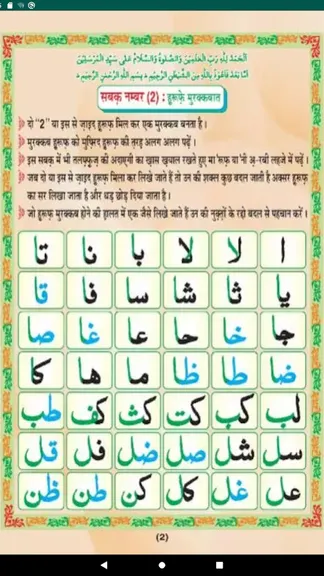 اَلْحَمْدُ لِلّٰهِ رَبِّ الْعٰلَمِيْنَ وَالصَّلٰوةُ وَالسَّلَامُ عَلٰى سَيِّدِ الْمُرْسَلِيْنَ
اَمَّا بَعْدُ فَاَعُوْذُ بِاللّٰهِ مِنَ الشَّيْطٰنِ الرَّجِيْمِ ؕ بِسْمِ اللّٰهِ الرَّحْمٰنِ الرَّحِيْمِ ؕ
सबक़ नम्बर (2) : हुरूफ़े मुरक्कबात
दो “2” या इस से ज़ाइद हुरूफ़ मिल कर एक मुरक्कब बनता है।
मुरक्कब हुरूफ़ को मुफ़्रिद हुरूफ़ की तरह अलग अलग पढ़ें।
इस सबक़ में भी तलफ़्फ़ुज़ की अदाएगी का ख़ास ख़याल रखते हुए मा'रूफ़ या'नी अ़-रबी लहजे में पढ़ें।
जब दो या इस से ज़ाइद हुरूफ़ मिला कर लिखे जाते हैं तो उन की शक्ल कुछ बदल जाती है अक्सर हुरूफ़
का सर लिखा जाता है और धड़ छोड़ दिया जाता है।
जो हुरूफ़ मुरक्कब होने की हालत में एक जैसे लिखे जाते हैं उन की नुक़्तों के रद्दो बदल से पहचान करें।
ا لا لا با نا تا
يا ثا شا سا فا قا
جا خا حا عا غا صا
ضا طا ظا ما ها كا
لب كب كت كث كف طب
سل شل صل ضل فل قل
عل غل كل كن طن ظن
(2)